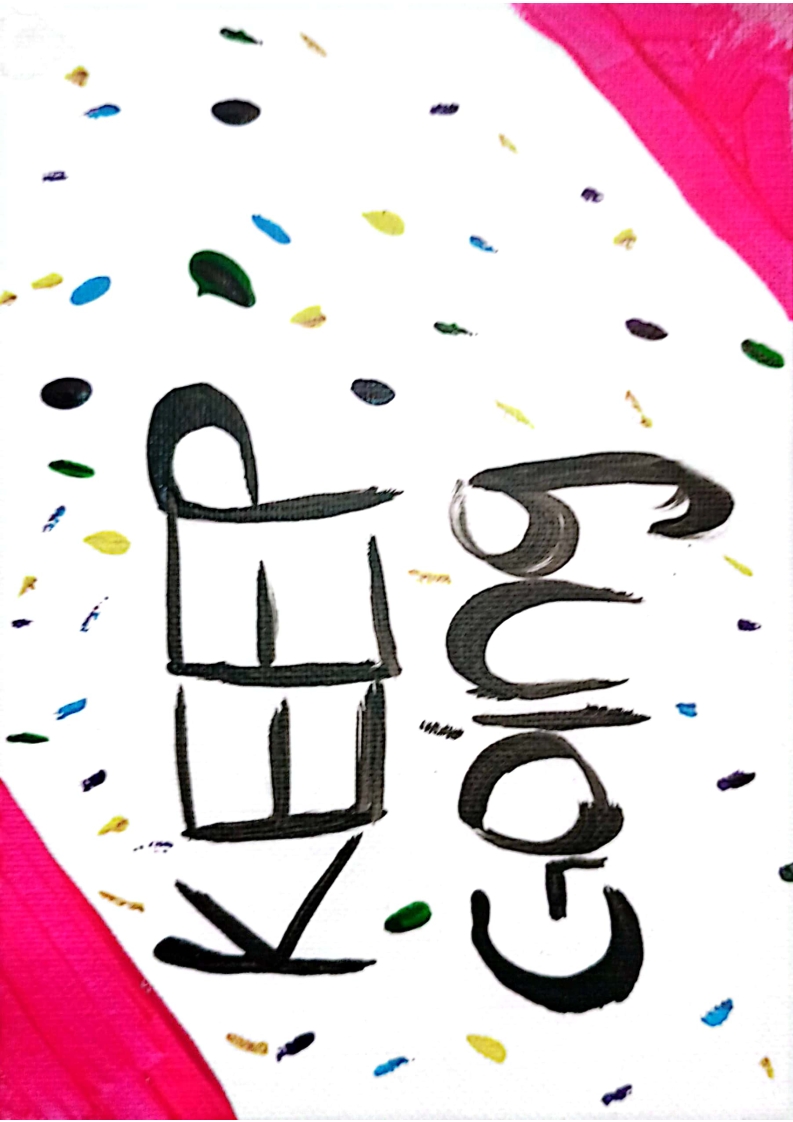 KEEP
Going